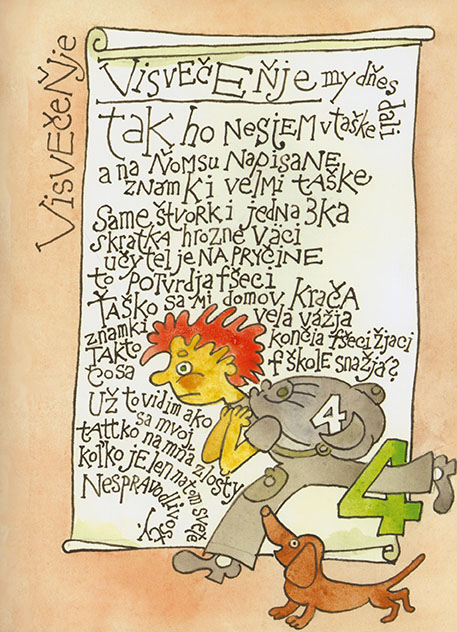 VisvečeŇje
VisvečEŇje my dňes dali
tak ho NesiEM v taške
a na Ňomsu NapisaNE
zNamKi veľmi ťaške
Same štvorki jedNa 3ka
skratka hrozNE vaci
učyteľ je NA PRYČINE
to potvrdja fšeci
Ťaško sa mi domov KRAČA
zNamki veľa vážja
tAKTo končia fšeci žjaci
čo sa f školE snažja?
Už to vidim ako
sa mvoj
tattko na mňa zlosty
koľko jE len na tom svete
NESpravodlivosty.
4
4